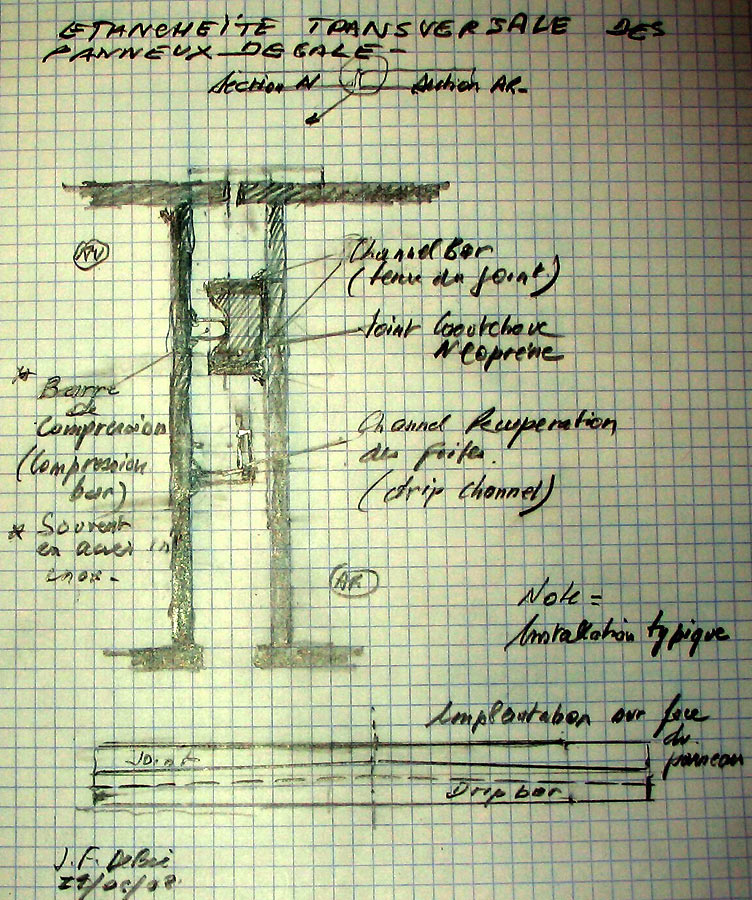 ETANCHEITE TRANSVERSALE DES
PANNEUX DE CALE -
Section AV
Section AR -
AV
Channel Bar
(tenu du joint)
Joint Caoutchouc
Neoprène
* Barre
de
Compression
(Compression
bar)
Channel Recuperation
des fuites.
(drip channel)
* Souvent
en acier
inox -
AR
Note =
Installation typique
Implantation sur face
du
panneau
Joint
Drip bar
J. F.